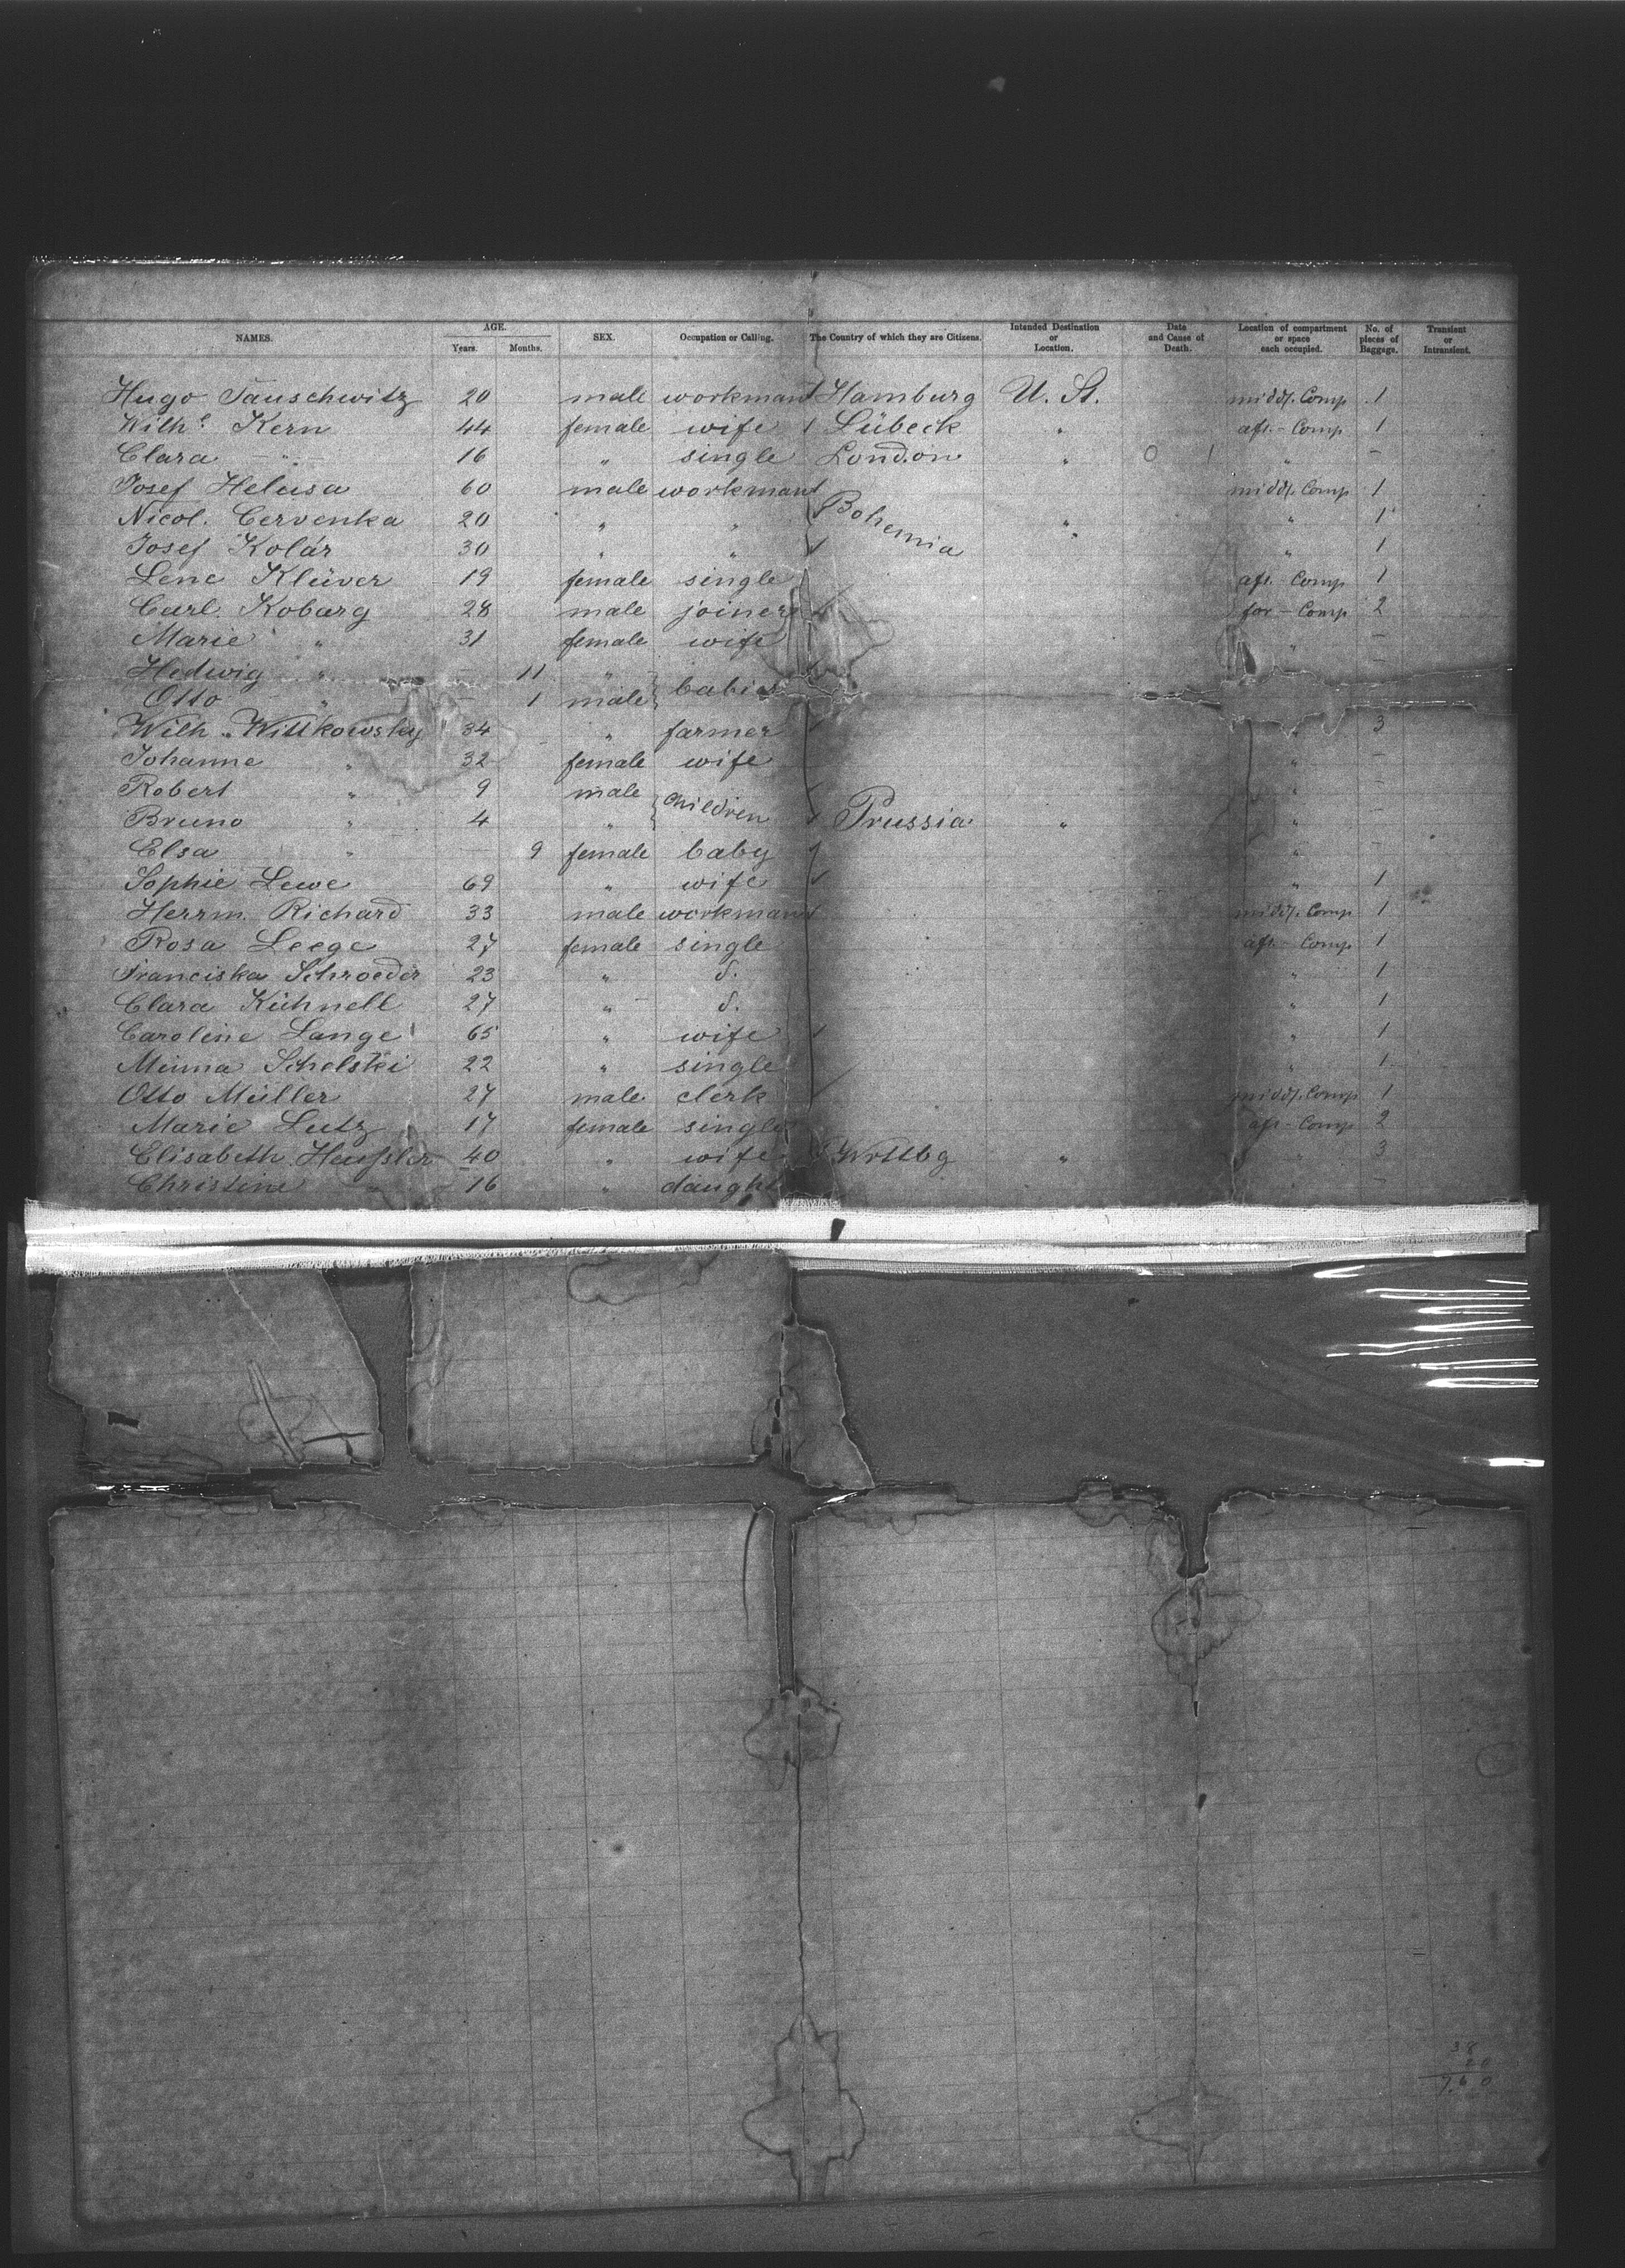 NAMES. AGE. Years. Months. SEX. Occupation or Calling. The Country of which they are Citizens. Intended Destination or Location. Date and Cause of Death. Location of compartment or space each occupied. No. of pieces of Baggage. Transient or Intransient.
Hugo Tauschwitz 20 male workman Hamburg U. St. midd. Comp 1
Wilh. Kern 44 female wife Lübeck " aft - Comp 1
Clara - " - 16 " single London " 0 1 " -
Josef Helusa 60 male workman midd. Comp 1
Nicol. Cervenka 20 " " Bohemia " " 1
Josef Kolár 30 " " " 1
Lene Klüver 19 female single aft. Comp 1
Carl Koburg 28 male joiner for - Comp 2
Marie " 31 female wife " -
Hedwig " - 11 " babies -
Otto " - 1 male
Wilh. Wittkowsky 34 - " farmer " 3
Johanne " 32 female wife " -
Robert " 9 male children " -
Bruno " 4 " Prussia " " -
Elsa " - 9 female baby " -
Sophie Lewe 69 " wife " 1
Herrm. Richard 33 male workman midd. Comp 1
Rosa Leege 27 female single aft - Comp 1
Franciska Schroeder 23 " d. " 1
Clara Kühnell 27 " d. " 1
Caroline Lange 65 " wife " 1
Minna Schelski 22 " single " 1
Otto Müller 27 male clerk midd. Comp 1
Marie Lutz 17 female single aft - Comp 2
Elisabeth Heußler 40 " wife Wrttbg " " 3
Christine 16 " daught -
38
20
7.60